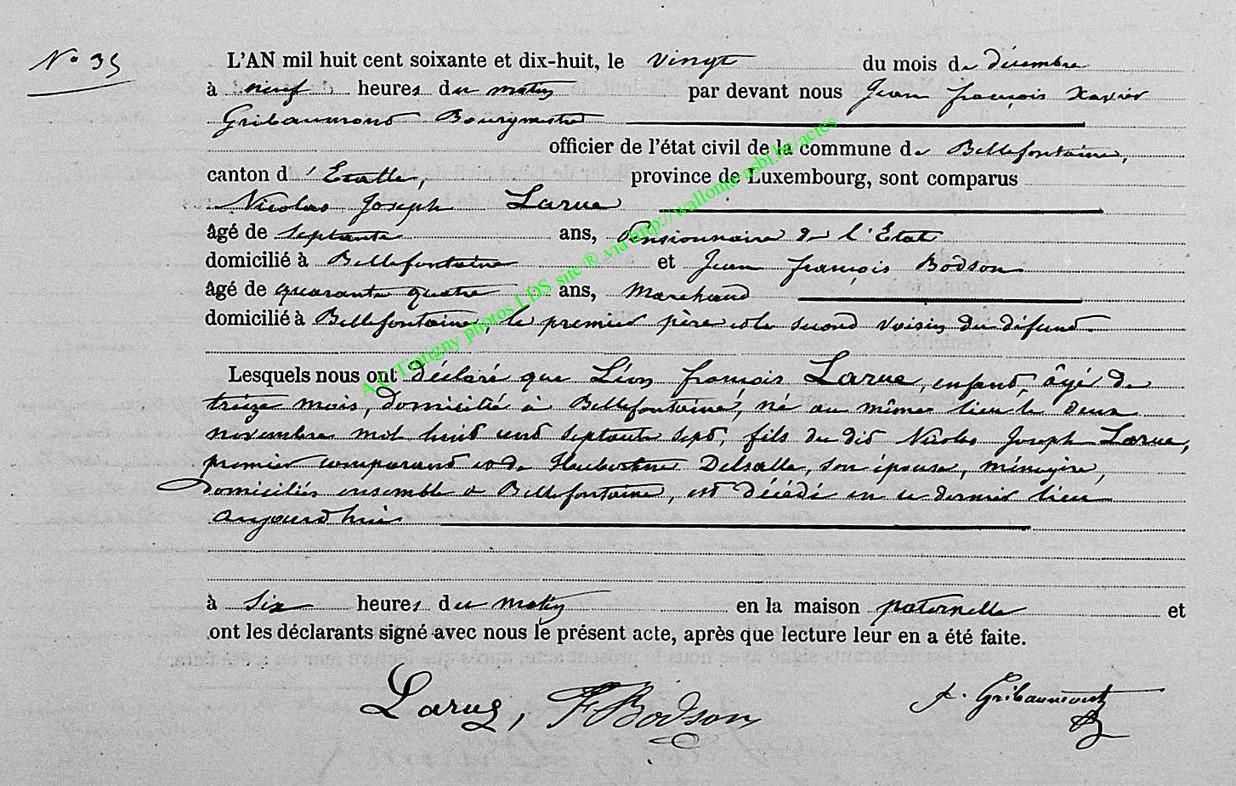 N° 35
L'AN mil huit cent soixante et dix-huit, le vingt du mois de décembre
à neuf heures du matin par devant nous Jean françois Xavier
Gribaumont Bourgmestre
officier de l'état civil de la commune de Bellefontaine,
canton d'Etalle, province de Luxembourg, sont comparus
Nicolas Joseph Larue
âgé de septante ans, Pensionnaire de l'Etat
domicilié à Bellefontaine et Jean françois Bodson
âgé de quarante quatre ans, Marchand
domicilié à Bellefontaine, le premier père et le second voisin du défunt.
Lesquels nous ont déclaré que Léon françois Larue, enfant, âgé de
treize mois, domicilié à Bellefontaine, né au même lieu le deux
novembre mil huit cent septante sept, fils du dit Nicolas Joseph Larue,
premier comparant et de Hubertine Delsalle, son épouse, ménagère,
domiciliés ensemble à Bellefontaine, est décédé en ce dernier lieu
aujourd'hui
à six heures du matin en la maison paternelle et
ont les déclarants signé avec nous le présent acte, après que lecture leur en a été faite.
Larue, F Bodson
Gribaumont
A C Tintigny photos LDS site ® via http://wallonia-asbl.be/actes